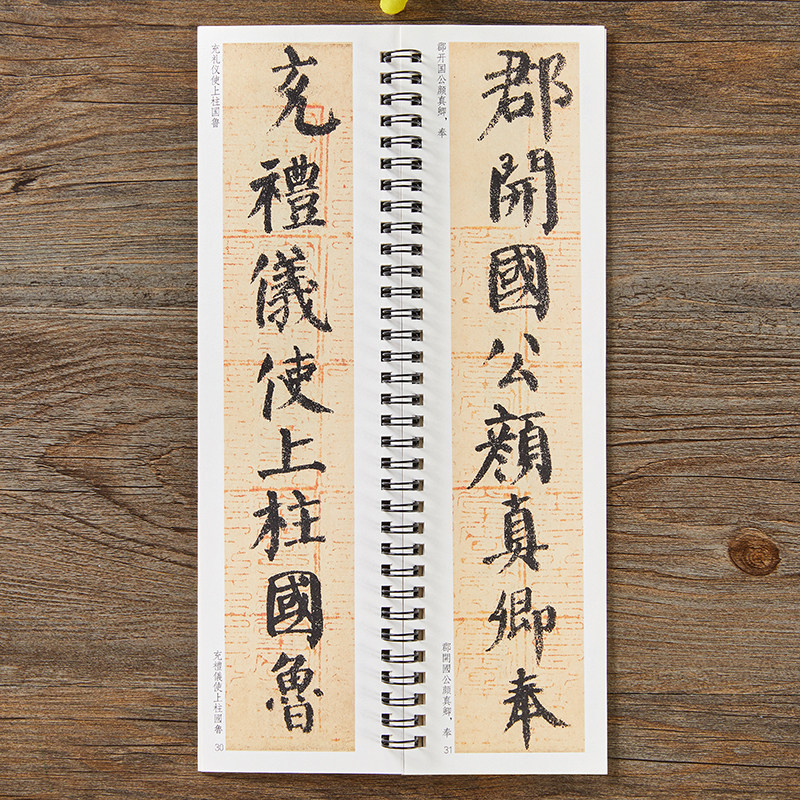 充礼仪使上柱国鲁
充禮儀使上柱國魯
充禮儀使上柱國魯
30
郡开国公颜真卿，奉
郡開國公顔真卿奉
郡開國公顔真卿，奉
31